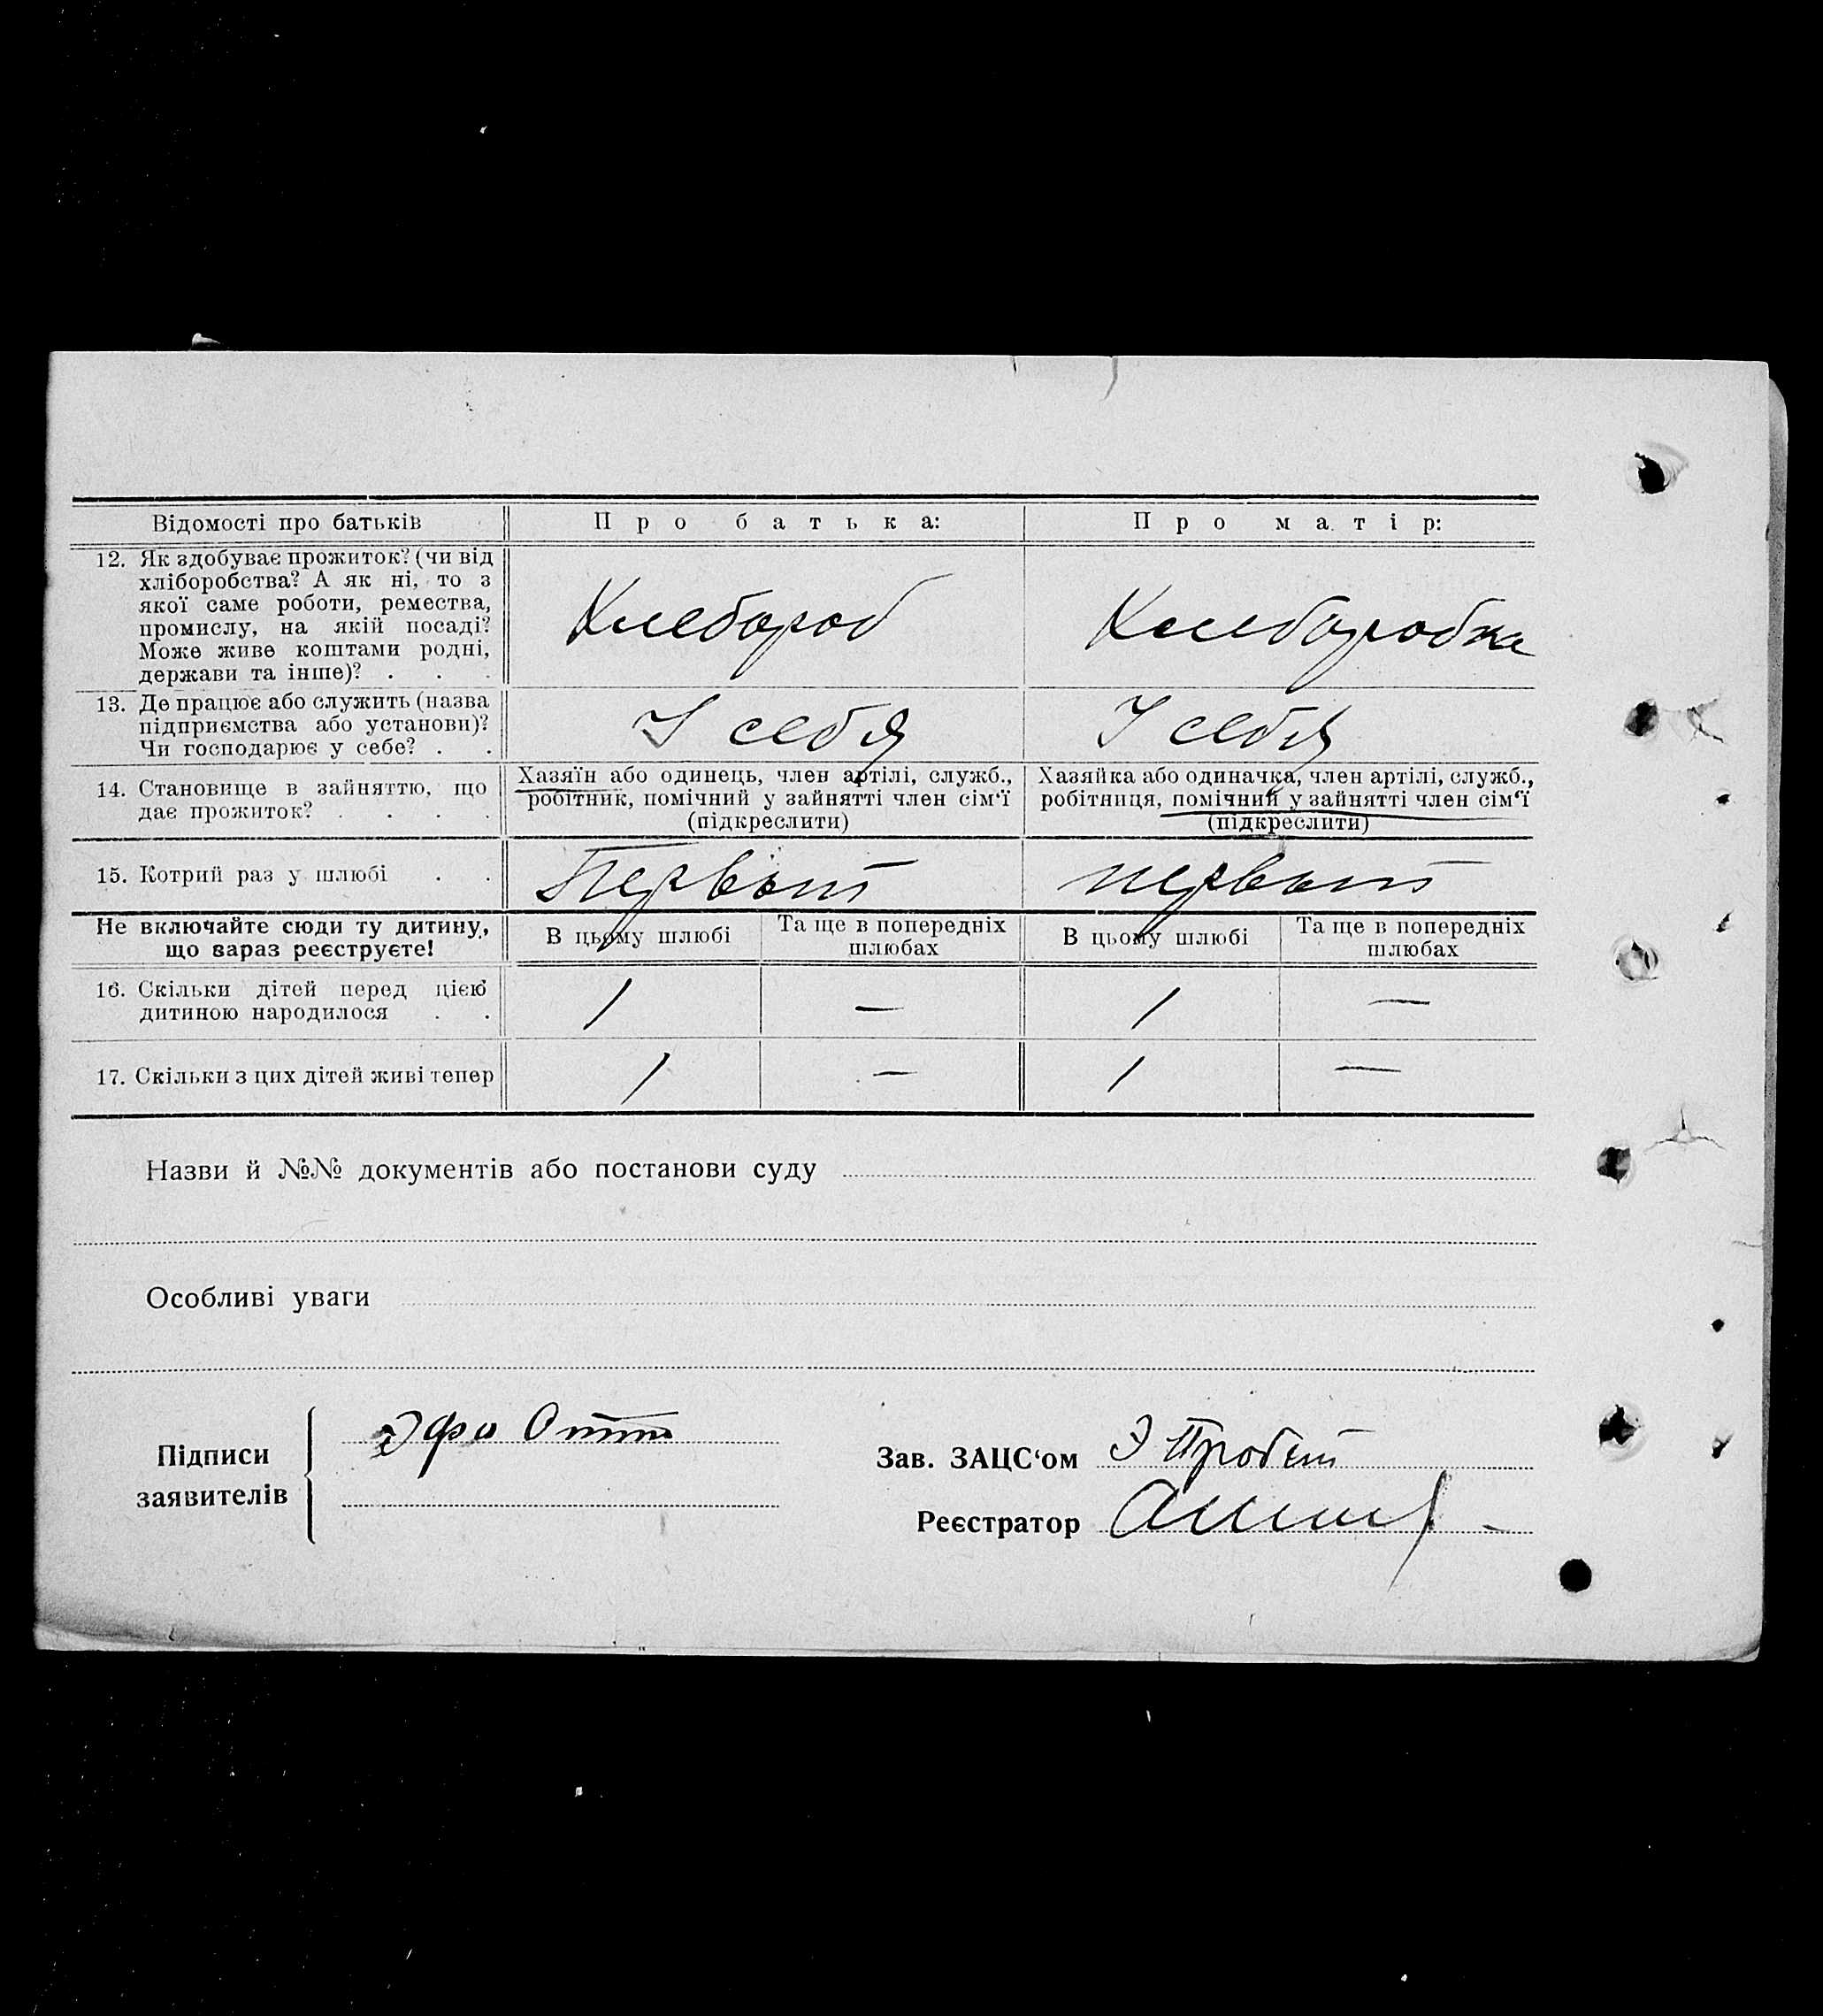 Відомості про батьків
Про батька:
Про матір:
12. Як здобуває прожиток? (чи від
хліборобства? А як ні, то з
якої саме роботи, ремества,
промислу, на якій посаді?
Може живе коштами родні,
держави та інше)? . . .
Хлебороб
Хлеборобка
13. Де працює або служить (назва
підприємства або установи)?
Чи господарює у себе? . .
У себя
У себя
14. Становище в зайняттю, що
дає прожиток? . . . .
Хазяїн або одинець, член артілі, служб.,
робітник, помічний у зайнятті член сім'ї
(підкреслити)
Хазяйка або одиначка, член артілі, служб.,
робітниця, помічний у зайнятті член сім'ї
(підкреслити)
15. Котрий раз у шлюбі . .
Первый
первый
Не включайте сюди ту дитину,
що зараз реєструєте!
В цьому шлюбі
Та ще в попередніх
шлюбах
В цьому шлюбі
Та ще в попередніх
шлюбах
16. Скільки дітей перед цією
дитиною народилося . .
1
—
1
—
17. Скільки з цих дітей живі тепер
1
—
1
—
Назви й №№ документів або постанови суду
Особливі уваги
Підписи
заявителів
Зав. ЗАЦС'ом
Реєстратор